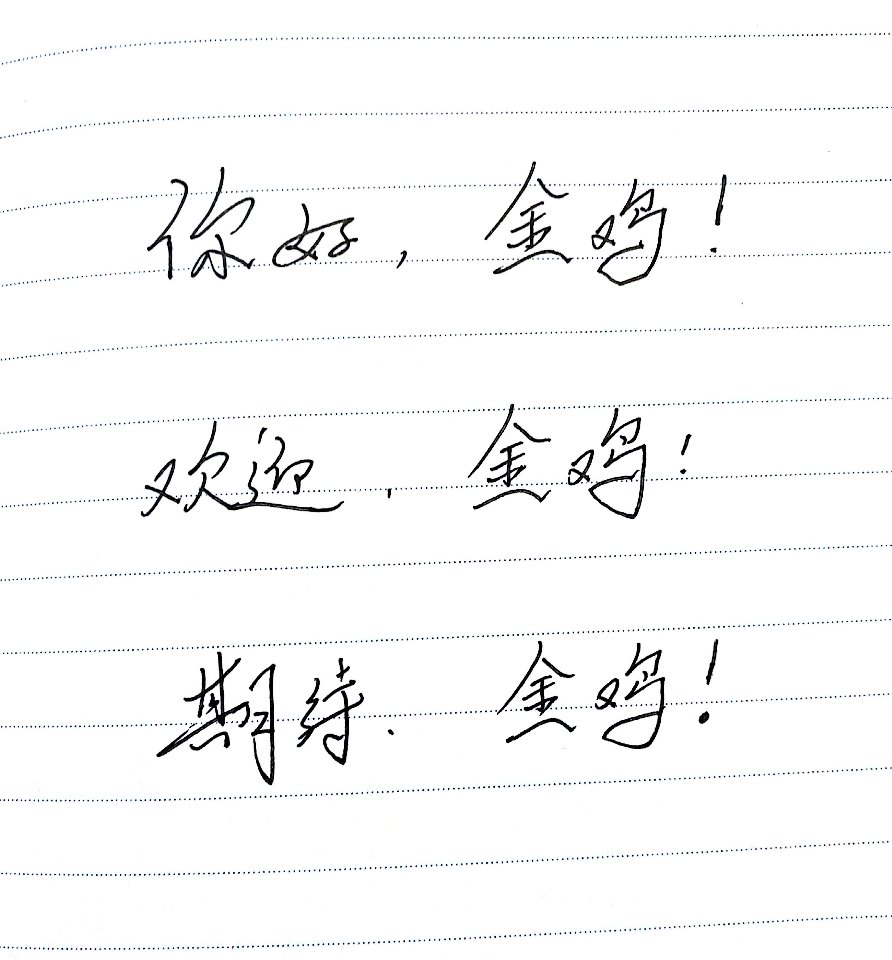 你好，金鸡！
欢迎，金鸡！
期待，金鸡！